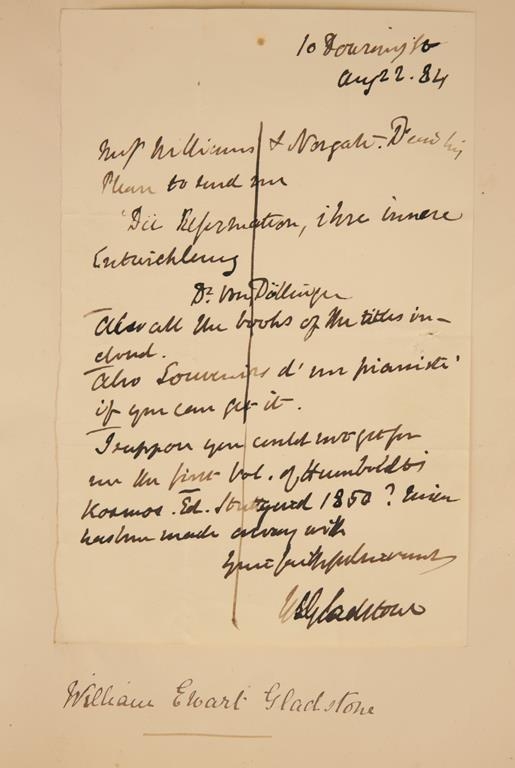 10 Downing St
Aug 22. 84
Messrs Williams & Norgate. Dear Sirs
Please to send me
'Die Reformation, ihre innere
Entwickelung
Dr. von Döllinger
Also all the books of the titles in-
closed.
Also Souvenirs d'un pianiste'
if you can get it.
I suppose you could not get for
me the first Vol. of Humboldts
Kosmos. Ed. Stuttgard 1850? Mine
has been made away with
Your faithful servant
WEGladstone
William Ewart Gladstone